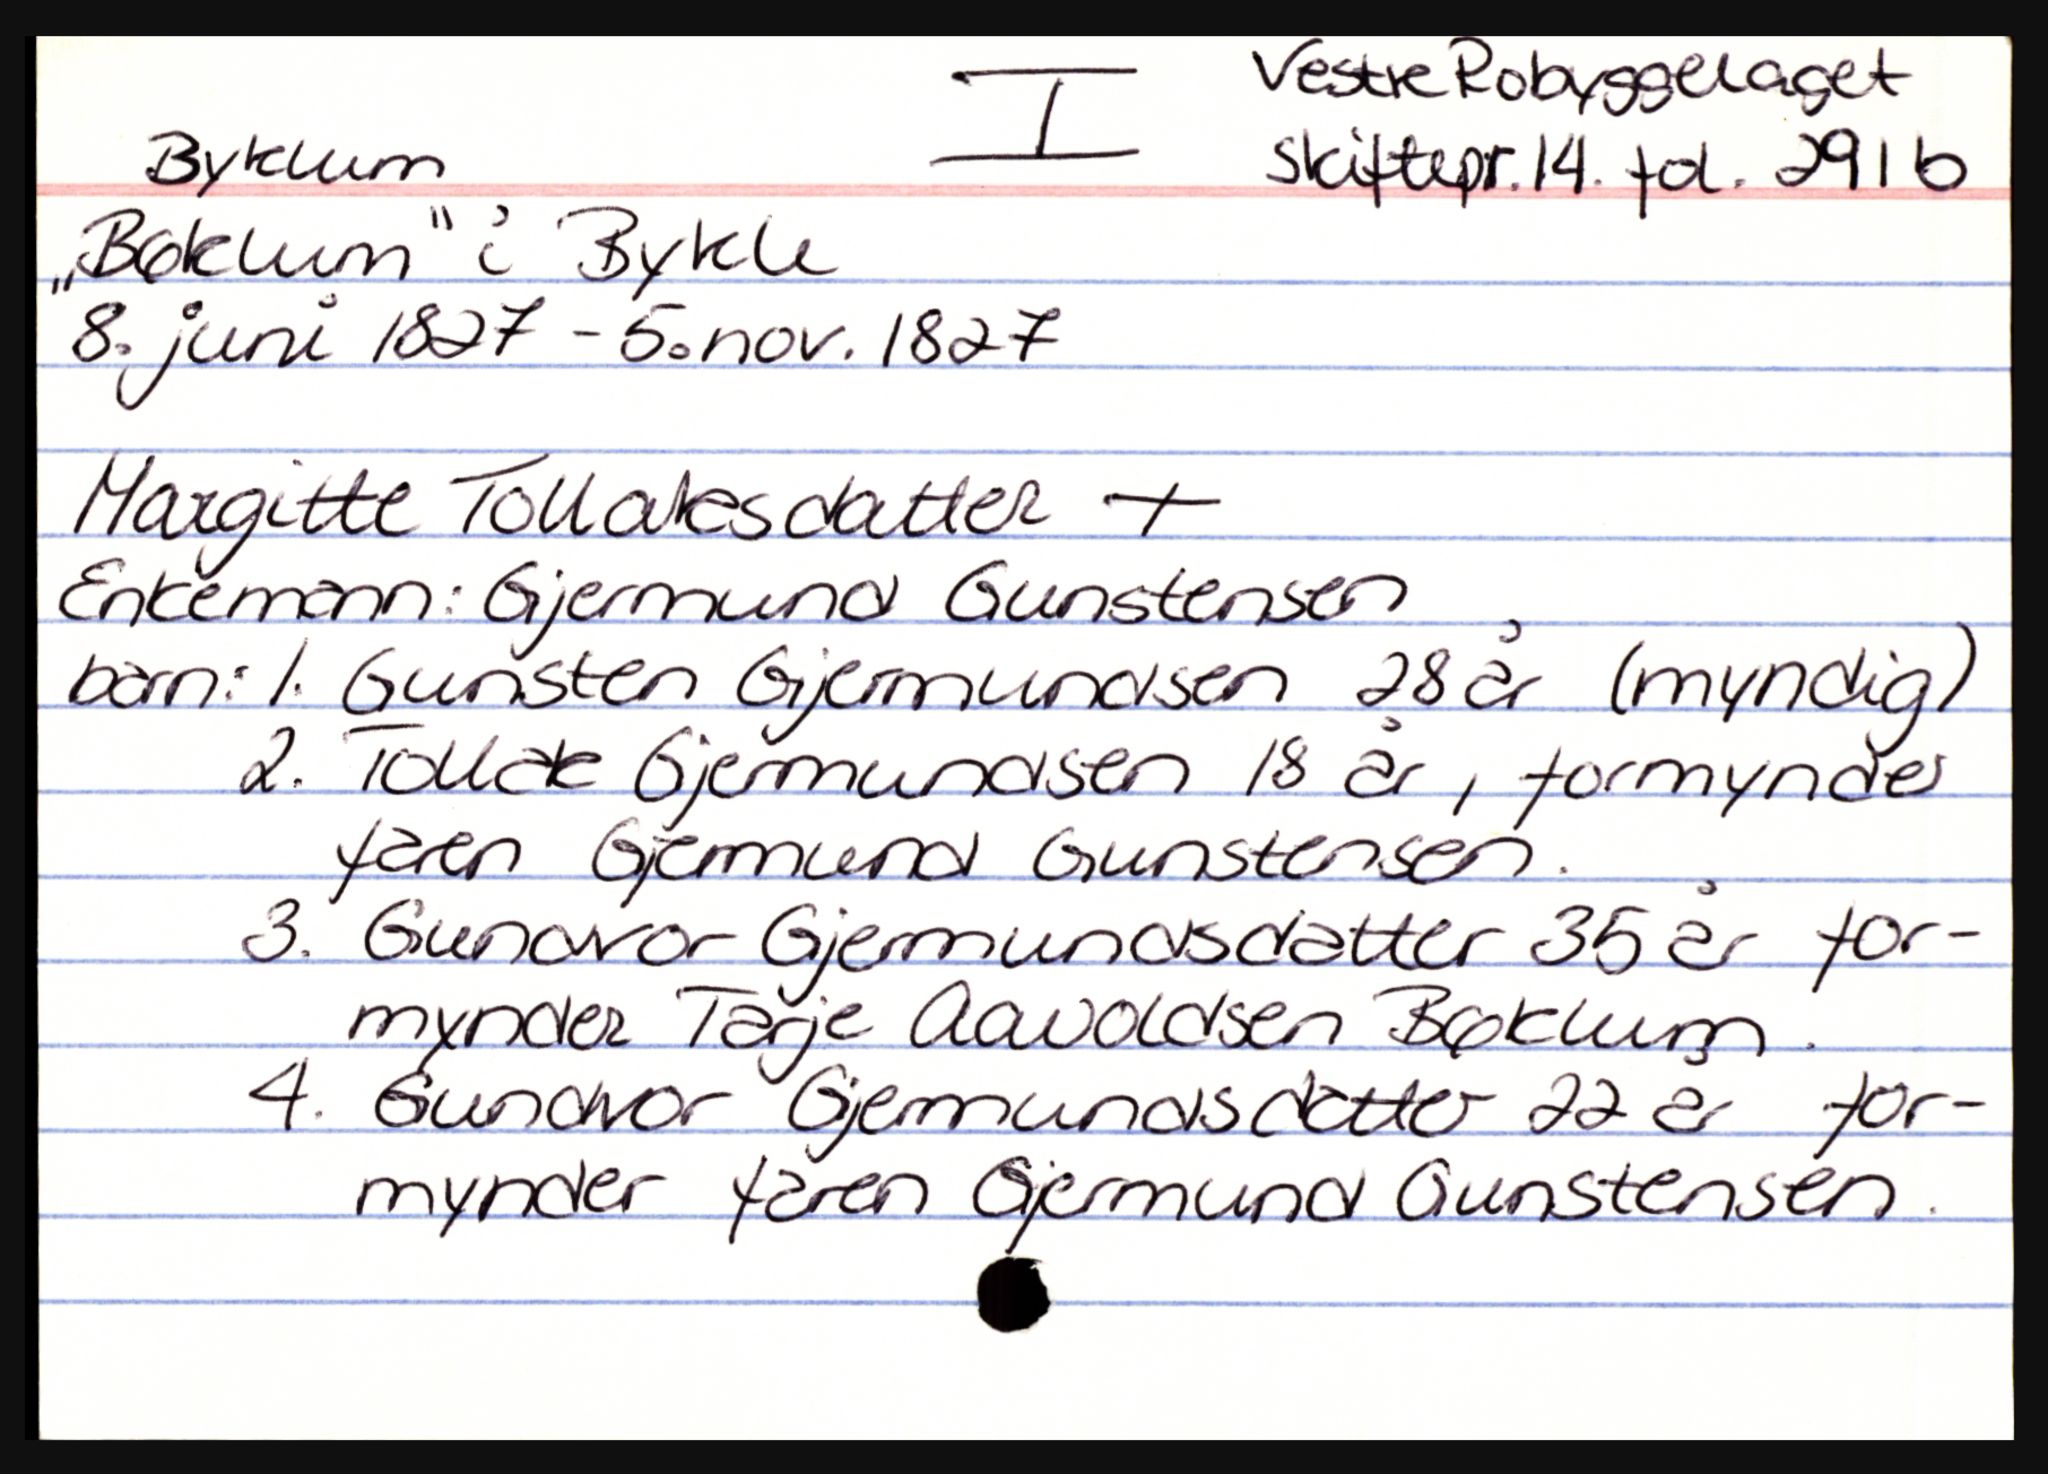 I
Vestre Robyggelaget
Byklum
skiftepr. 14. fol. 291 b
„Bøklum" i Bykle
8. juni 1827 - 5. nov. 1827
Margitte Tollaksdatter +
Enkemann: Gjermund Gunstensen
barn: 1. Gunsten Gjermundsen 28 år (myndig)
2. Tollak Gjermundsen 18 år, formynder
faren Gjermund Gunstensen.
3. Gundvor Gjermundsdatter 35 år for-
mynder Tarje Aavoldsen Bøklum.
4. Gundvor Gjermundsdatter 22 år for-
mynder faren Gjermund Gunstensen.